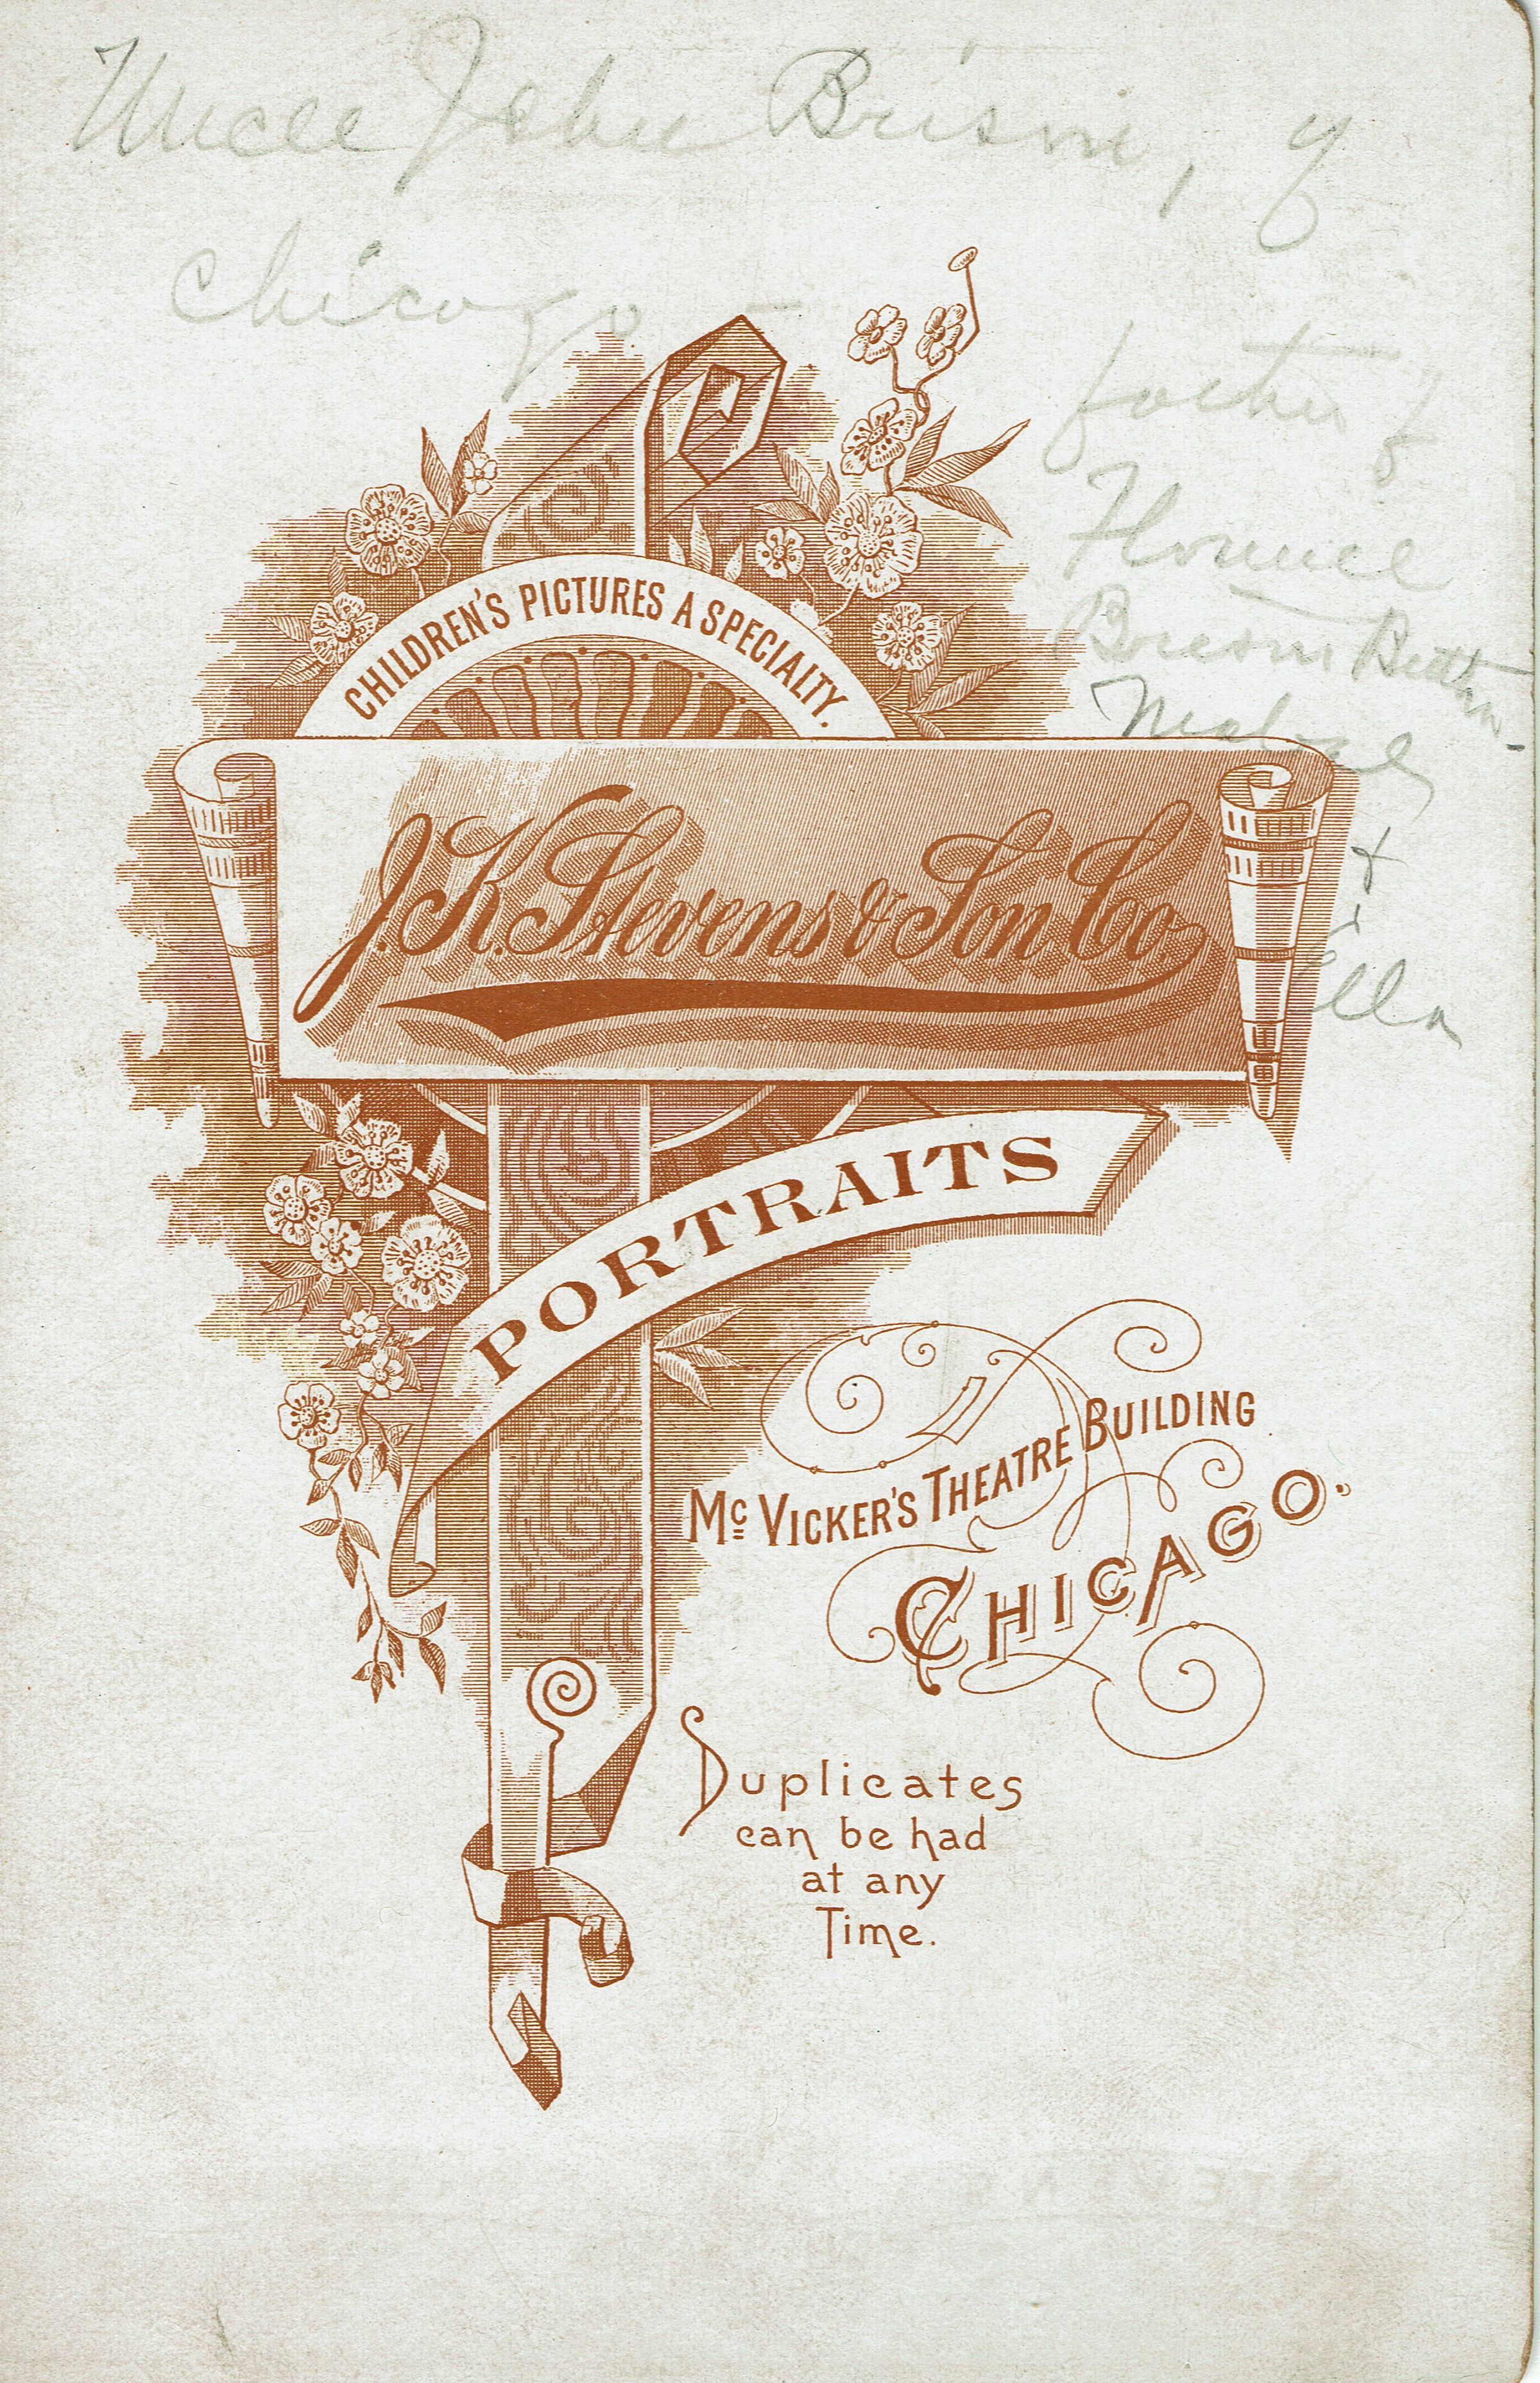 Uncle John Brism, of
Chicago -
father of
Florence
Mabel
&
Ella
CHILDREN'S PICTURES A SPECIALTY.
J.K. Stevens & Son Co.
PORTRAITS
McVICKER'S THEATRE BUILDING
CHICAGO.
Duplicates
can be had
at any
Time.